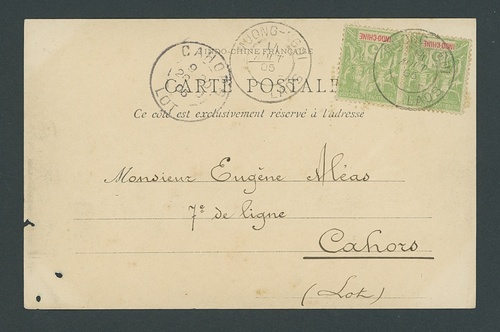 INDO-CHINE FRANÇAISE
CARTE POSTALE
Ce côté est exclusivement réservé à l'adresse
CAHORS
LOT
05
LAOS
INDO-CHINE
5
INDO-CHINE
5
LAOS
Monsieur Eugène Aléas
7e de ligne
Cahors
(Lot)